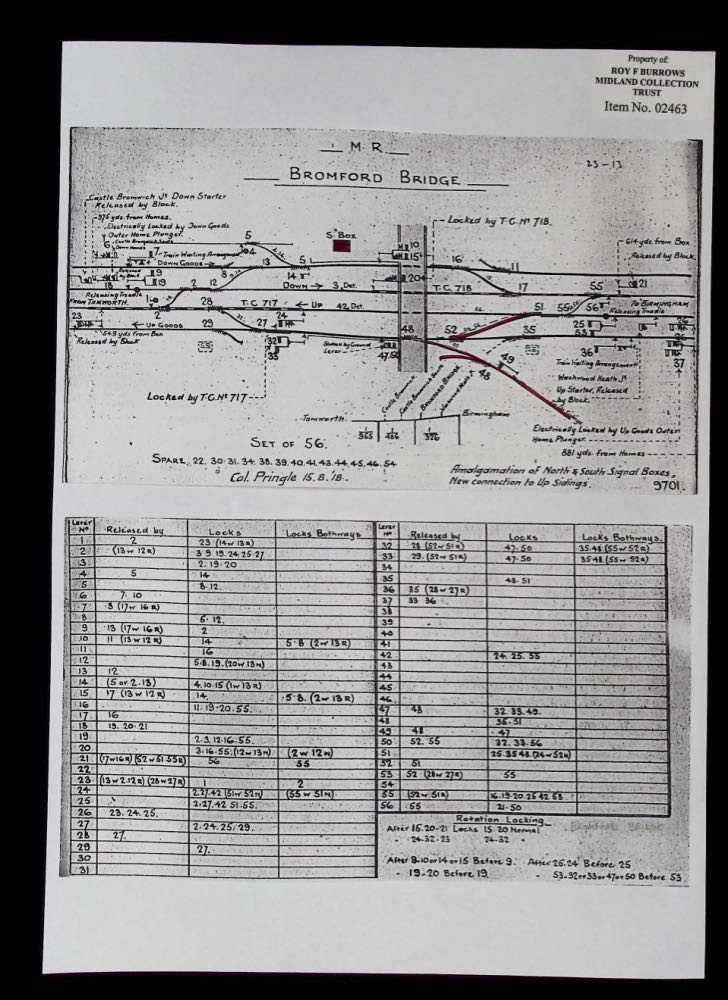 Property of:
ROY F BURROWS
MIDLAND COLLECTION
TRUST
Item No. 02463
M R
23-13
BROMFORD BRIDGE
Castle Bromwich Jt Down Starter
Released by Block.
975 yds. from Homes.
Electrically Locked by Down Goods
Outer Home Plunger.
Train Waiting Arrangement
S. Box
Locked by T.C. No 718.
614 yds. from Box
Released by Block.
DOWN GOODS
DOWN 3 Det.
T.C. 718
Releasing Treadle
FROM TAMWORTH.
T.C. 717 UP 42 Det.
TO BIRMINGHAM
Releasing Treadle
UP GOODS
549 yds from Box
Released by Block
Locked by T.C. No 717
Train Waiting Arrangement
Washwood Heath Jt
Up Starter, Released
by Block.
Tamworth
Birmingham
BROMFORD BRIDGE
Electrically Locked by Up Goods Outer
Home Plunger.
881 yds. from Homes
SET OF 56.
SPARE, 22. 30. 31. 34. 38. 39. 40. 41. 43. 44. 45. 46. 54
Col. Pringle 15.8.'18.
Amalgamation of North & South Signal Boxes,
New connection to Up Sidings.
9701.
Lever No Released by Locks Locks Bothways
1 2 23 (14w 13R)
2 (13w 12R) 3 9 19. 24. 25. 27
3 2. 19. 20
4 5 14
5 8. 12.
6 7. 10
7 8 (17w 16R)
8 5. 12.
9 13 (17w 16R) 2
10 11 (13w 12R) 14 5. 8 (2w 13R)
11 16
12 5. 8. 19. (20w 13N)
13 12
14 (5 or 2. 13) 4. 10. 15 (1w 13R)
15 17 (13w 12R) 14. 5. 8. (2w 13R)
16 11. 19. 20. 55.
17 16
18 19. 20. 21
19 2. 3. 12. 16. 55.
20 3. 16. 55. (12w 13N) (2w 12N)
21 (17w16R) (52w 51 55R) 56 55
22
23 (13w 2.12R) (28w 27R) 1 2
24 2. 27. 42 (51w 52N) (55w 51N)
25 2. 27. 42. 51. 55.
26 23. 24. 25.
27 2. 24. 25. 29.
28 27.
29 27.
30
31
Lever No Released by Locks Locks Bothways.
32 28 (52w 51R) 47. 50 35. 48. (55w 52R)
33 29. (52w 51R) 47. 50 35. 48. (55w 52R)
34
35 48. 51
36 35 (28w 27R)
37 33 36
38
39
40
41
42 24. 25. 55
43
44
45
46
47 48 32. 33. 49.
48 35. 51
49 48 47
50 52. 55 32. 33. 56
51 25. 35. 48. (24w 52N)
52 51
53 52 (28w 27R) 55
54
55 (52w 51R) 16. 19. 20. 25. 42. 53
56 55 21. 50
Rotation Locking
After 15. 20-21 Locks 15. 20 Normal
" 24-32-23 " 24-32 "
After 9-10 or 14 or 15 Before 9. After 25. 24 Before 25
" 19-20 Before 19 " 53-32 or 33 or 47 or 50 Before 53